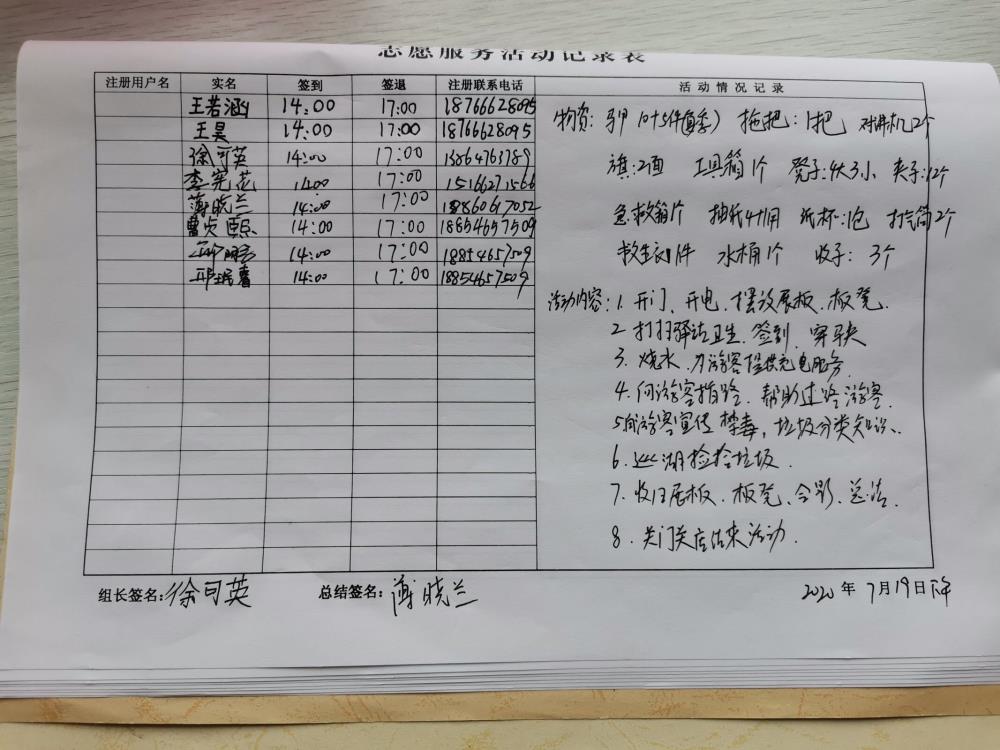 志愿服务活动记录表
注册用户名 实名 签到 签退 注册联系电话 活动情况记录
王若涵 14:00 17:00 18766628095
王昊 14:00 17:00 18766628095
徐可英 14:00 17:00 13864763789
李宪花 14:00 17:00 15166271566
薄晓兰 14:00 17:00 18860617052
曹贞熙 14:00 17:00 18854657509
邱 14:00 17:00 18854657509
邱珉睿 14:00 17:00 18854657509
物资: 马甲 10+5件(夏季) 拖把:1把 对讲机2个
旗:2面 工具箱1个 凳子:4大3小 夹子:12个
急救箱1个 抽纸 纸杯:1包 打气筒2个
救生衣1件 水桶1个 收子: 3个
活动内容: 1. 开门、开电、摆放展板、板凳.
2 打扫驿站卫生、签到、穿马夹
3. 烧水、为游客提供充电服务.
4. 向游客指路、帮助过路游客.
5向游客宣传禁毒,垃圾分类知识.
6. 巡湖捡拾垃圾.
7. 收归展板、板凳、合影、总结.
8. 关门关店结束活动.
组长签名: 徐可英 总结签名: 薄晓兰 2020年7月19日下午